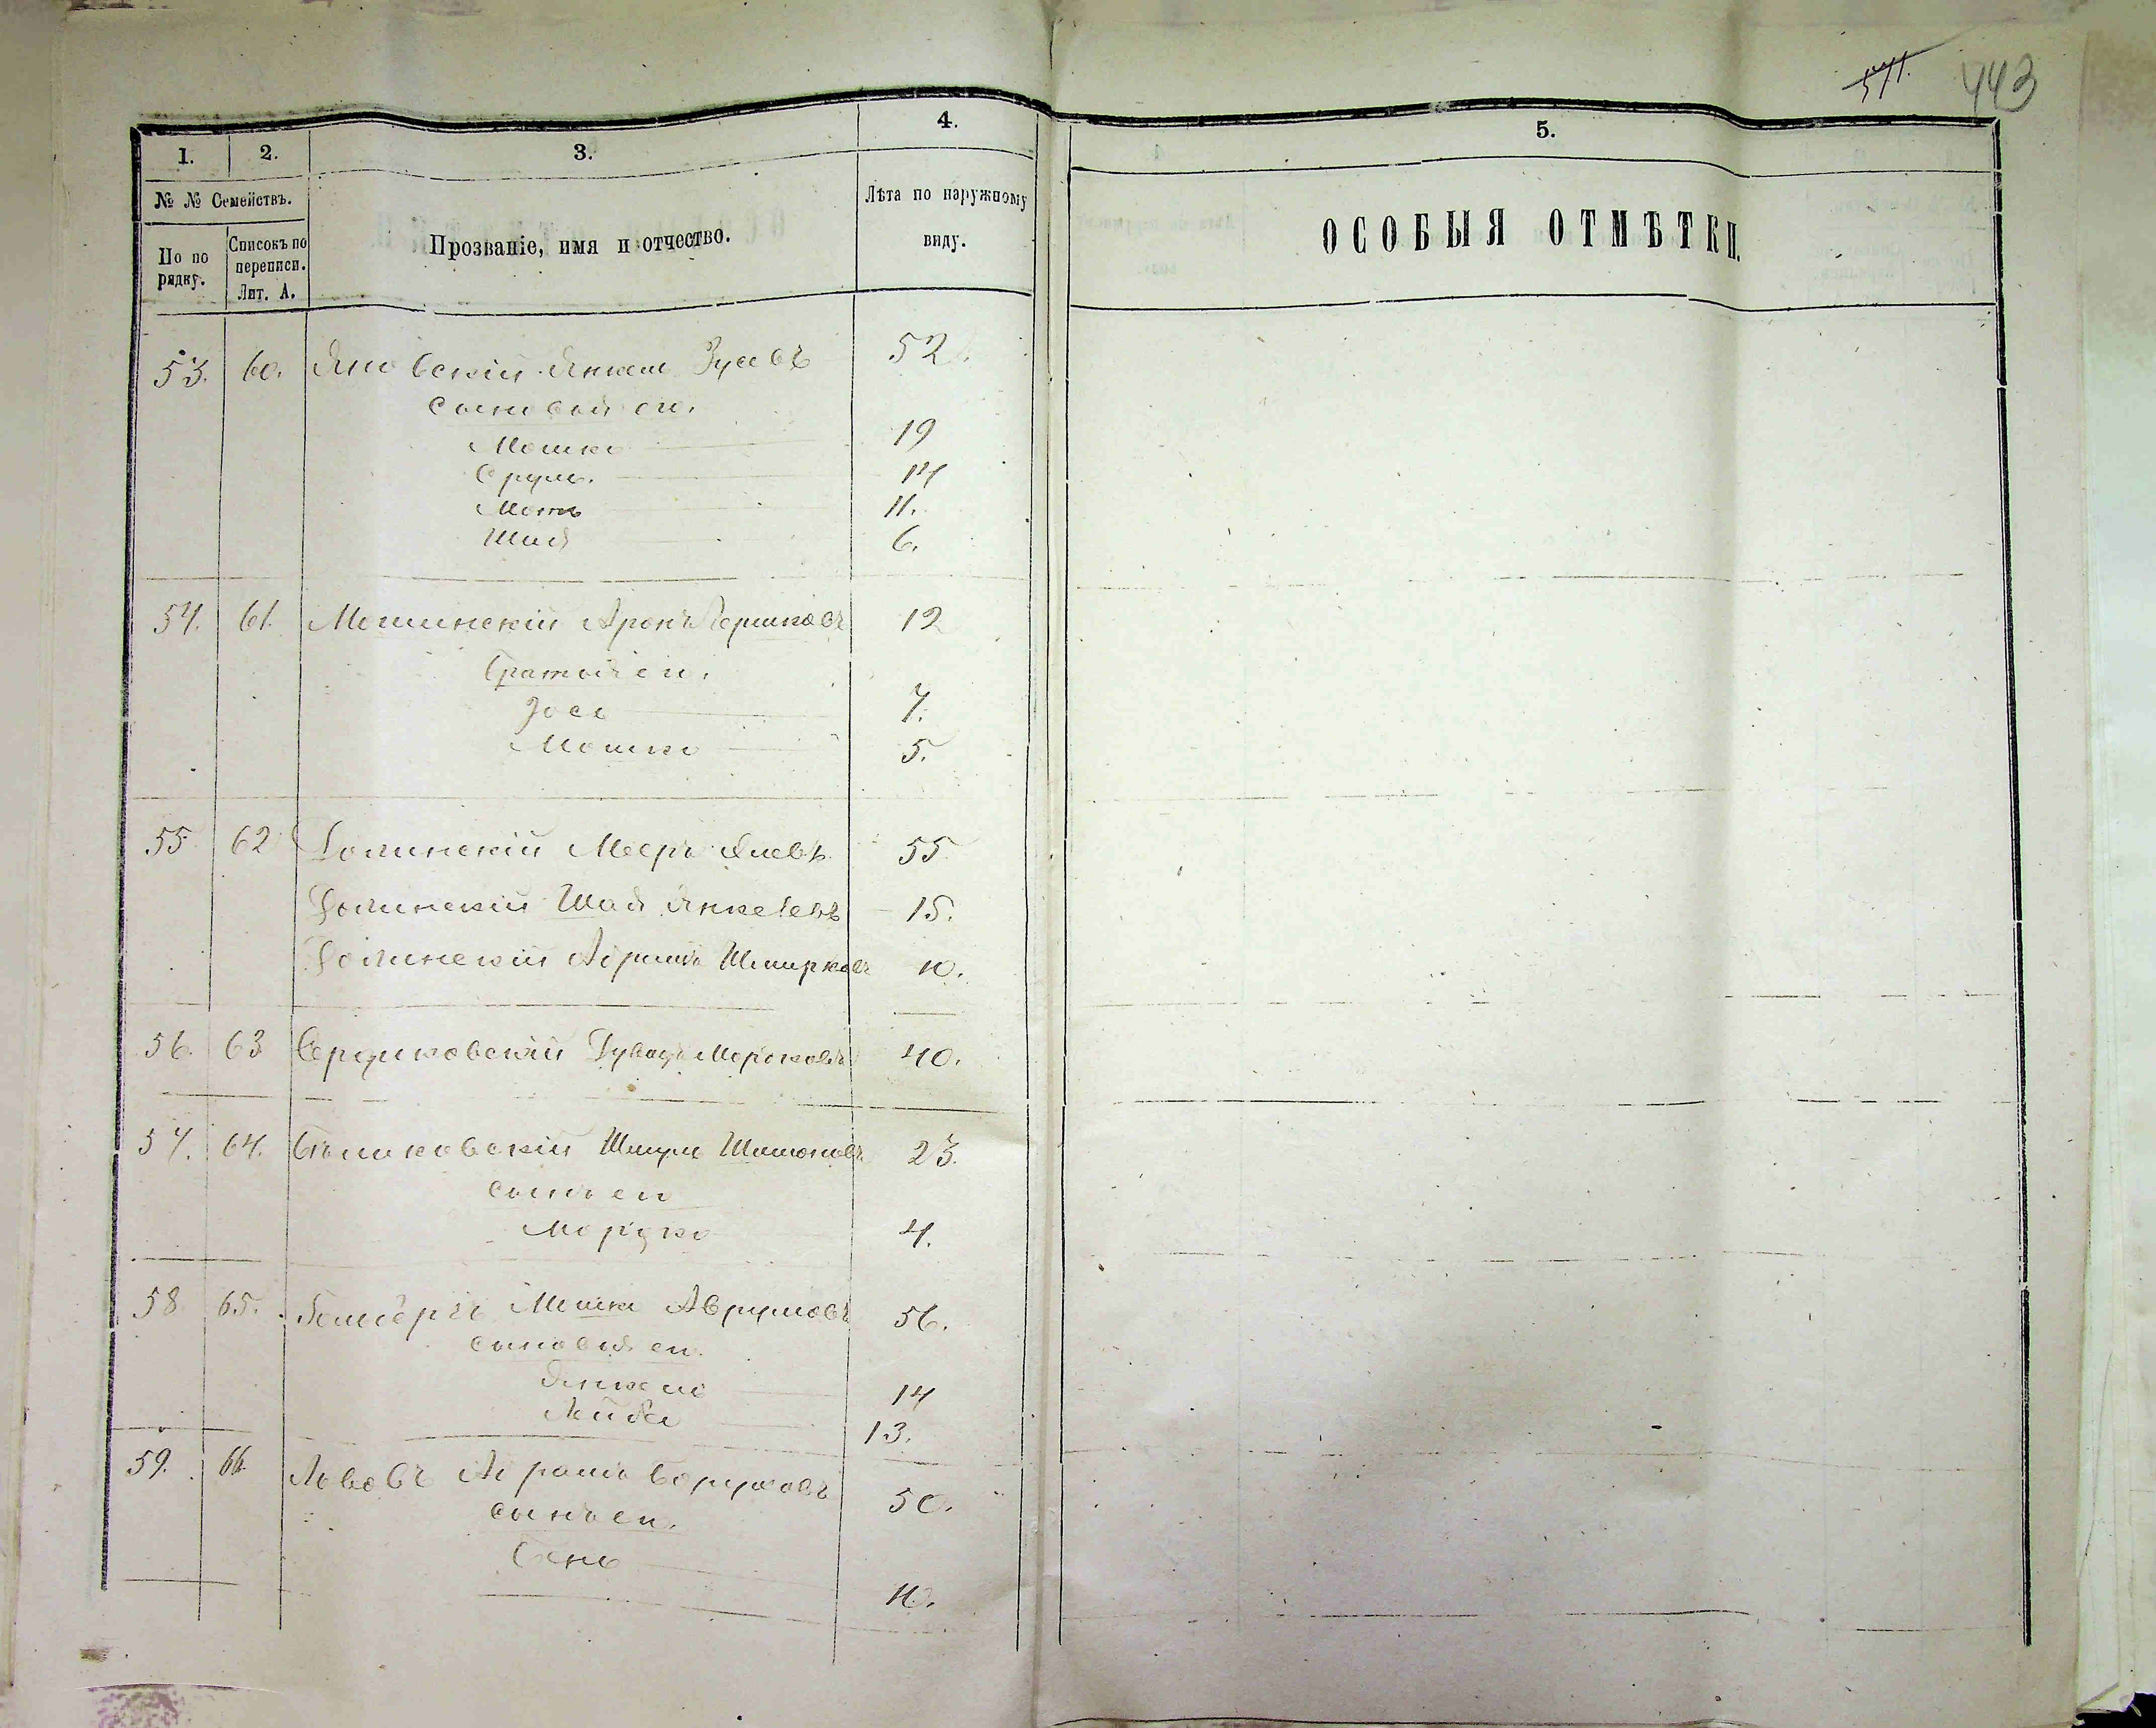 571. 443
1. 2. 3. 4. 5.
№ № Семействъ.
По по рядку.
Списокъ по переписи. Лит. А.
Прозваніе, имя и отчество.
Лѣта по наружному виду.
ОСОБЫЯ ОТМѢТКИ.
53. 60. Яновскій Янкель Зусевъ 52.
сыновья его.
Мошко 19
Сруль. 14
Мотль 11.
Шая 6.
54. 61. Мошинскій Аронъ Гершковъ 12
братья его.
Іосе 7.
Мошко 5.
55. 62 Долинскій Мееръ 55
Долинскій Шая Янкелевъ 15.
Долинскій Абрамъ 10.
56. 63 Мордковъ 40.
57. 64. Шмуль Шимоновъ 23.
сынъ его
Мордко 4.
58. 65. Мошко Аврумовъ 56.
сыновья его.
Янкель 14
Лейба 13.
59. 66. Львовъ Абрамъ Боруховъ 50.
сынъ его.
Бень 10.